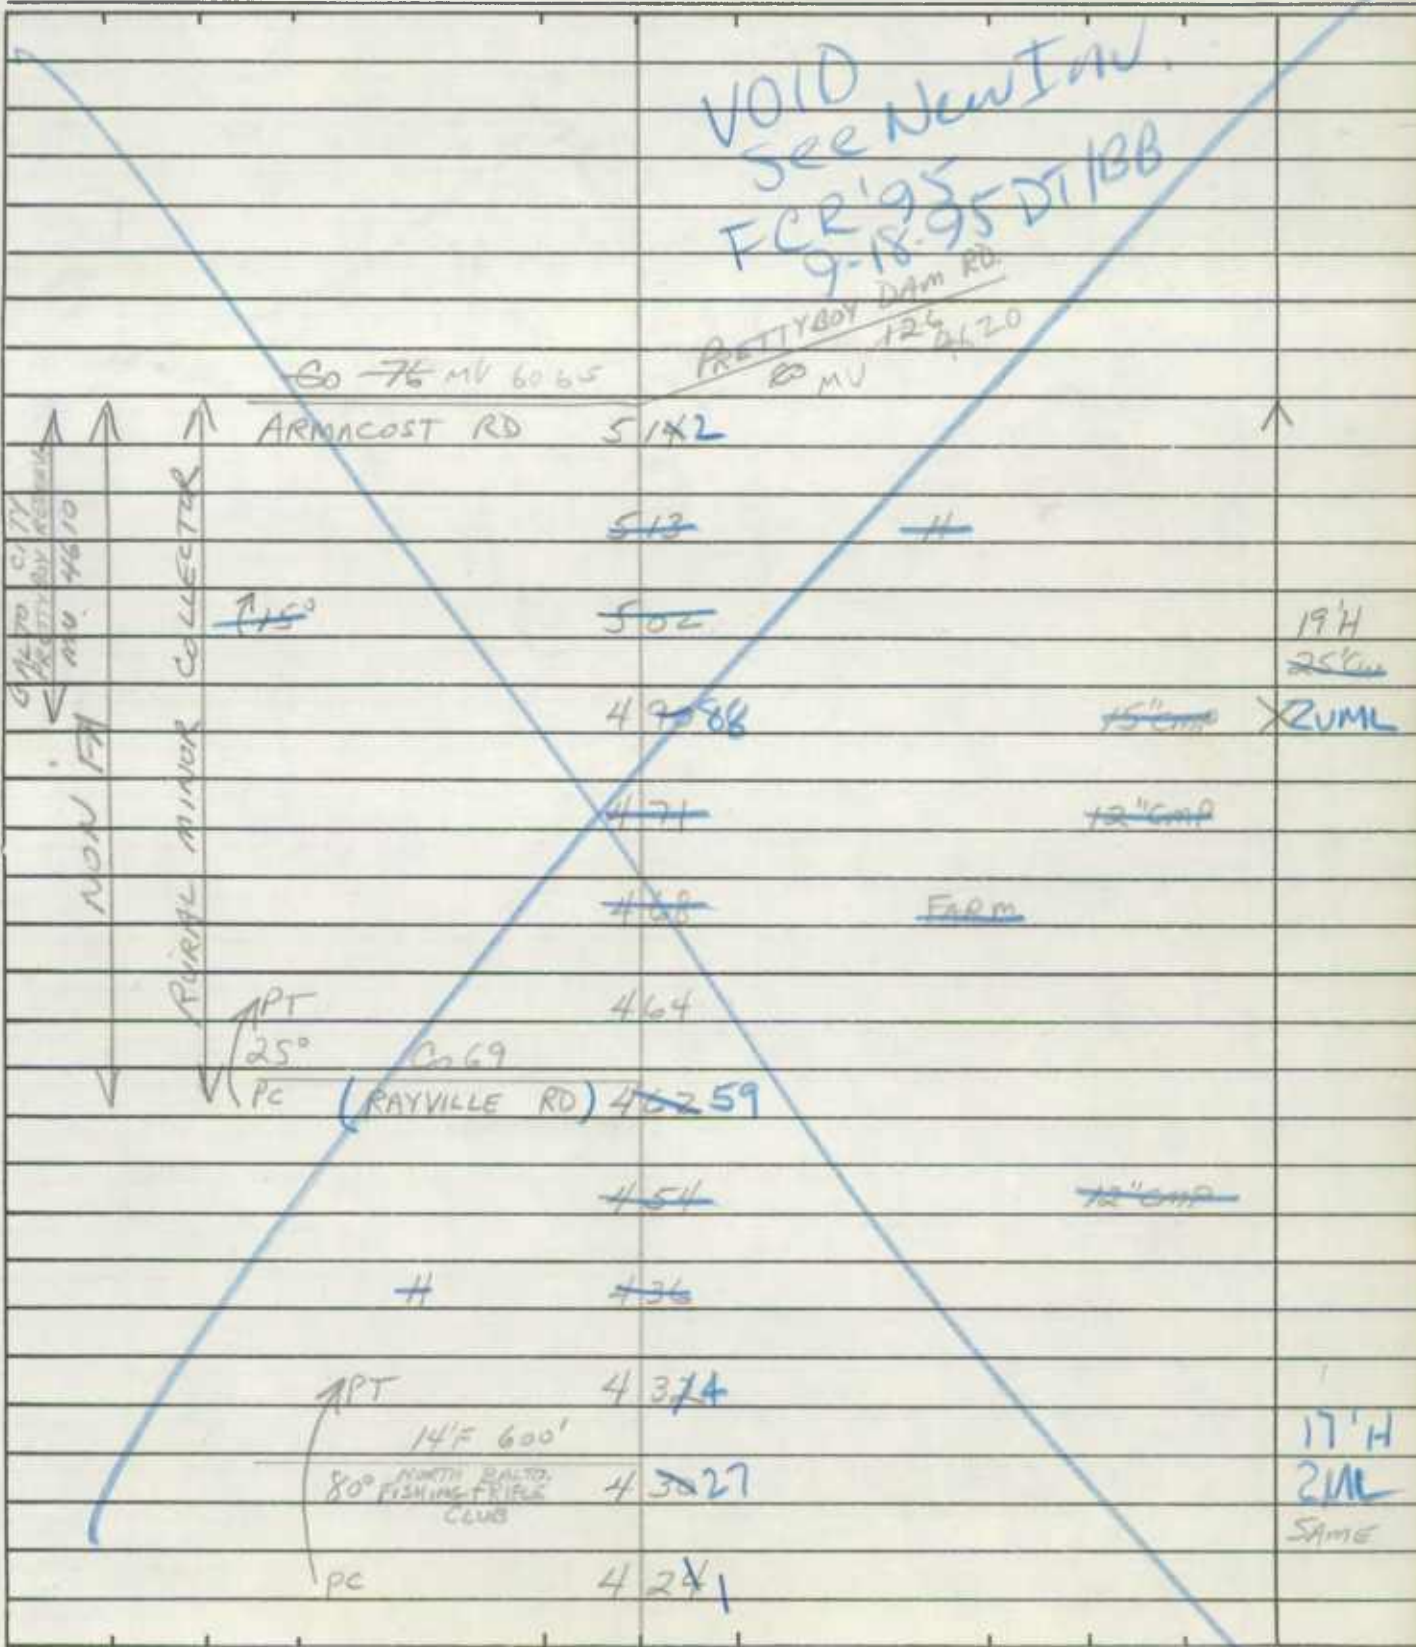 VOID
See New Inv.
FCR '95
9-18-95 DT/BB
PRETTYBOY DAM RD.
MV
Co 76 MV 6065
ARMACOST RD 5 142
BALTO CITY
PRETTYBOY
MV. 4610
NON FA
RURAL MINOR COLLECTOR
5 13 H
15° 5 02 19'H
4 90 88 15" CMP 2UML
4 71 12" CMP
4 68 FARM
PT 4 64
25° Co 69
PC (RAYVILLE RD) 4 62 59
4 54 12" CMP
H 4 36
PT 4 34
14'F 600' 17'H
80° NORTH BALTO. 4 30 27 2ML
FISHING + RIFLE
CLUB SAME
PC 4 24 1